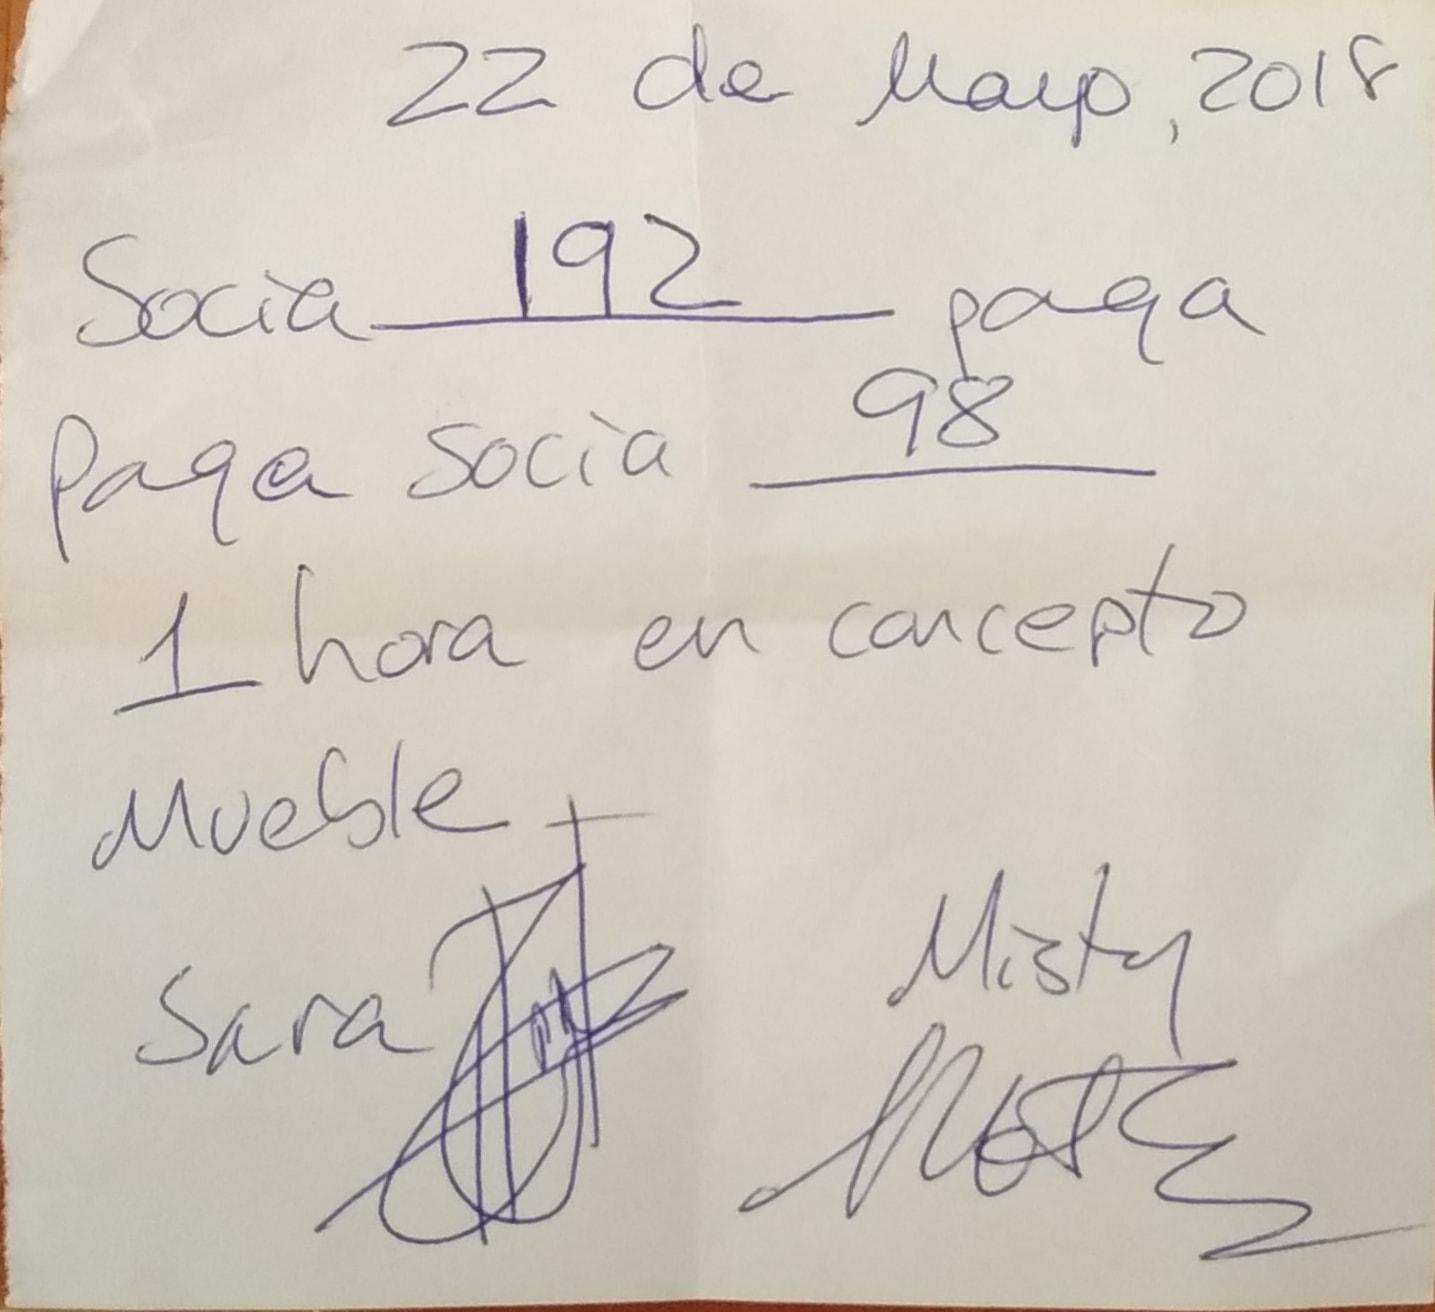 22 de Mayo, 2018
Socia 192 paga
paga socia 98
1 hora en concepto
Mueble
Sara
Misty